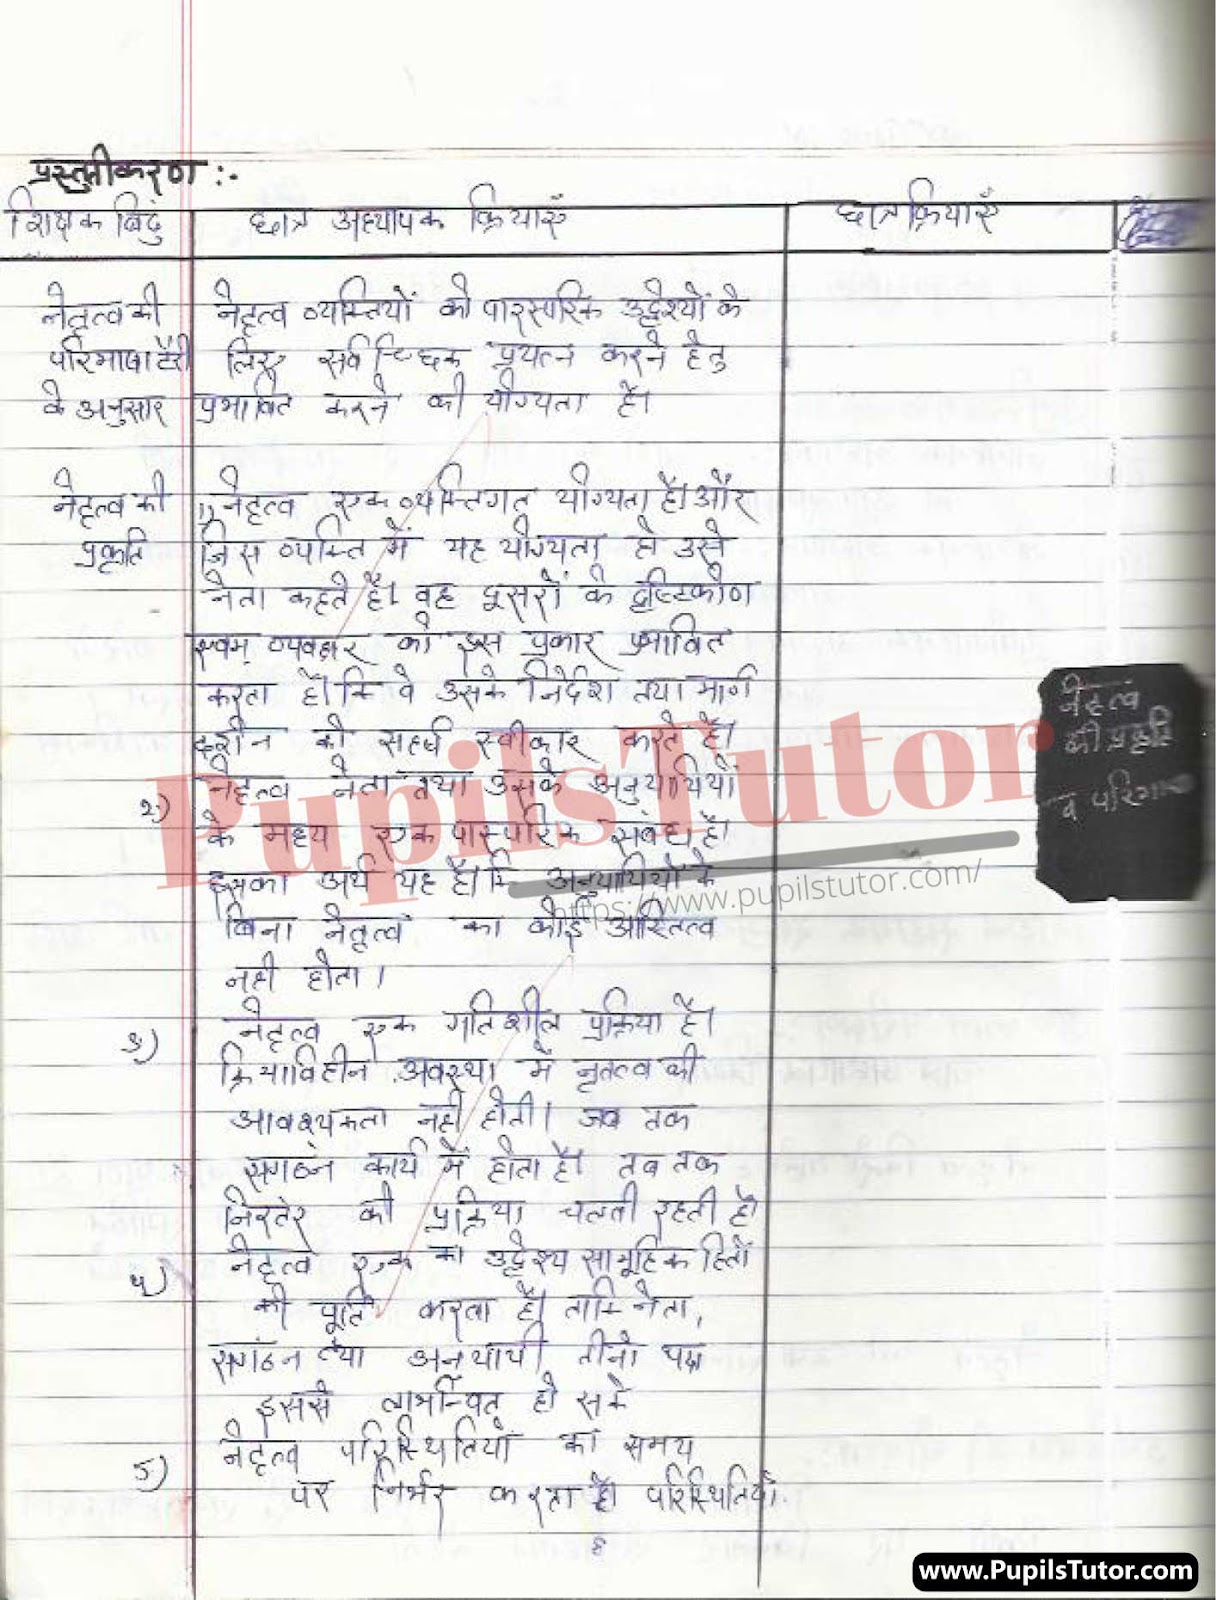 प्रस्तुतीकरण :-
शिक्षक बिंदु छात्र अध्यापक क्रियाएँ छात्र क्रियाएँ
नेतृत्व की नेतृत्व व्यक्तियों को पारस्परिक उद्देश्यों के
परिभाषा टैरी लिए स्वैच्छिक प्रयत्न करने हेतु
के अनुसार प्रभावित करने की योग्यता है।
नेतृत्व की 1) नेतृत्व एक व्यक्तिगत योग्यता है। और
प्रकृति जिस व्यक्ति में यह योग्यता हो उसे
नेता कहते है। वह दूसरों के दृष्टिकोण
एवम् व्यवहार को इस प्रकार प्रभावित
करता है। कि वे उसके निर्देश तथा मार्ग
दर्शन को सहर्ष स्वीकार करते है।
2) नेतृत्व नेता तथा उसके अनुयायियों
के मध्य एक पारस्परिक संबंध है।
इसका अर्थ यह है। कि अनुयायियों के
बिना नेतृत्व का कोई अस्तित्व
नही होता।
3) नेतृत्व एक गतिशील प्रक्रिया है।
क्रियाविहीन अवस्था में नृतत्व की
आवश्यकता नही होती। जब तक
सगठन कार्य में होता है। तब तक
निरतंर की प्रक्रिया चलती रहती है
4) नेतृत्व एक का उद्देश्य सामूहिक हितों
की पूर्ति करता है। ताकि नेता,
सगंठन तथा अनयायी तीनो पक्ष
इससे लाभान्वित हो सके
5) नेतृत्व परिस्थितियों का समय
पर निर्भर करता है। परिस्थितियाँ
नेतृत्व
की प्रकृति
व परिभाषा
PupilsTutor
https://www.pupilstutor.com/
8
www.PupilsTutor.com